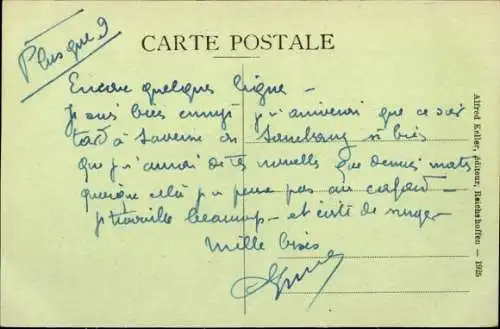 Plus que 9
CARTE POSTALE
Encore quelques lignes —
je suis bien ennuyé je n'arriverai que ce soir
tard à Saverne ou si bien
que je n'aurai de tes nouvelles que demain matin
quoique cela je pense pas au cafard —
je travaille beaucoup — et évite de
Mille bises
Alfred Keller, éditeur, Reichshoffen — 1925